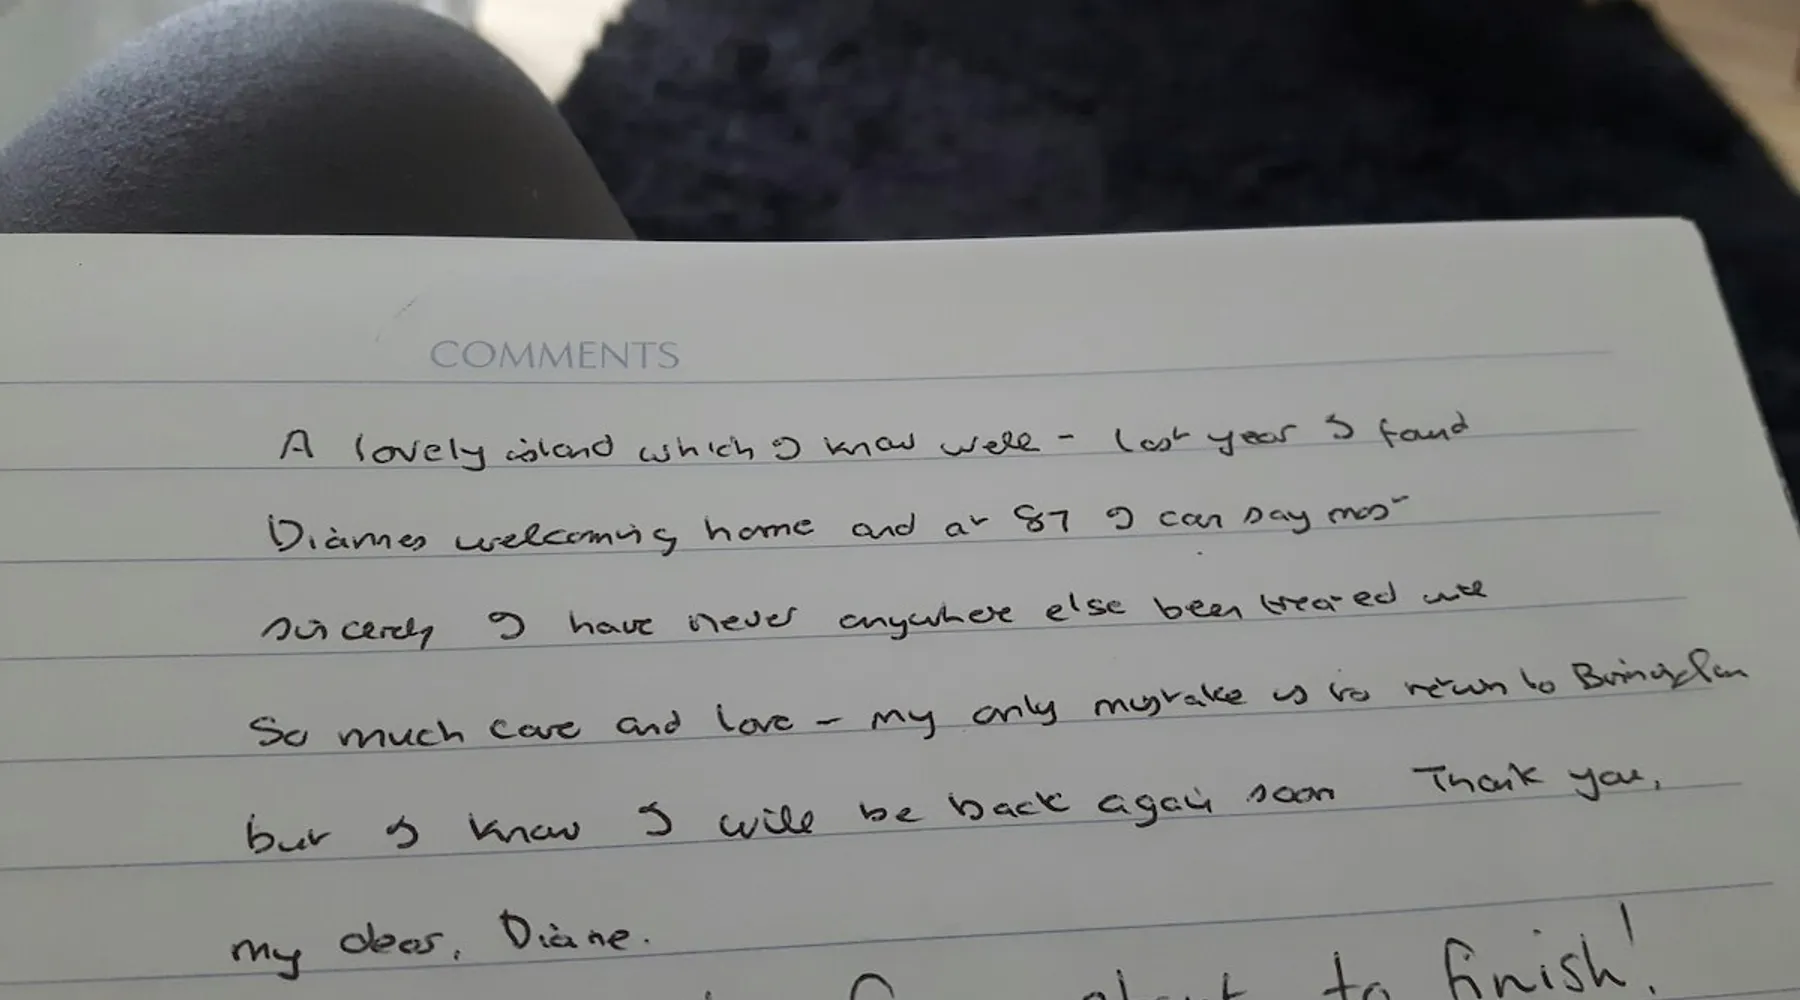 COMMENTS
A lovely island which I know well - last year I found
Dianne's welcoming home and at 87 I can say most
sincerely I have never anywhere else been treated with
so much care and love - my only mistake is to return to
but I know I will be back again soon Thank you,
my dear, Diane.
to finish!